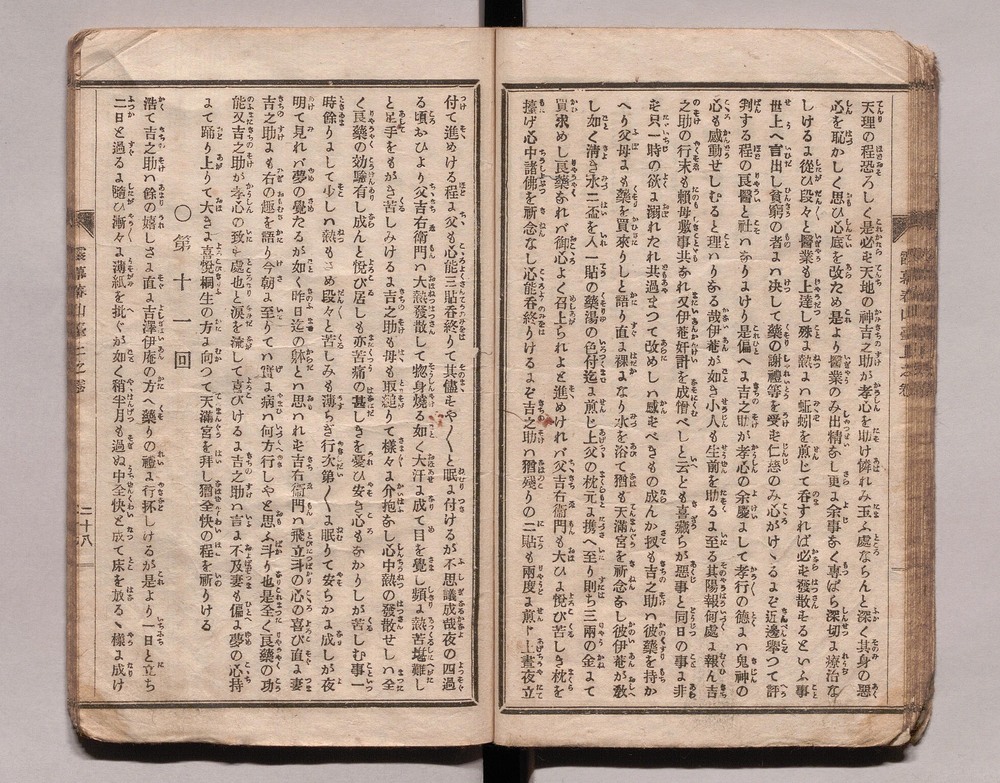 天理の程恐ろしく是必を天地の神吉之助が孝心を助け憐れみ玉ふ處ならんと深く其身の惡
心を恥かしく思ひ心底を改ため是より醫業のみ出精なし更よ余事なく專ばら深切よ療治な
しけるよ從ひ段々と醫業も上達し殊よ熱よハ蚯蚓を煎じて呑すれば必を發散をるといふ事
世上へ言出し貧窮の者よハ决して藥の謝禮等を受を仁惎のみ心がけゝるよぞ近邊擧つて評
判する程の良醫と社ハなりよけり是偏へよ吉之助が孝心の余慶よして孝行の德よハ鬼神の
心も感動せしむると理ハりなる哉伊菴が如き小人も生前を助るよ至る其陽報何處よ報ん吉
之助の行末も賴母敷事共なれ又伊菴奸計を成憎べしと云とも喜藏らが惡事と同日の事よ非
を只一時の欲よ溺れたれ共過まつて改めしハ感をべきもの成んか扨も吉之助ハ彼藥を持か
へり父母よも藥を買來りしと語り直よ裸よなり水を浴て猶も天滿宮を祈念なし彼伊菴が敎
し如く淸き水二盃を入一貼の藥湯の色付迄よ煎じ上父の枕元よ携へ至り則ち三兩の金よて
買求めし良藥なれバ御心よく召上られよと進めければ父吉右衞門も大ひよ悅び苦しき枕を
擡げ心中諸佛を祈念なし心能呑終りけるよぞ吉之助ハ猶殘りの二貼も兩度よ煎じ上晝夜立
付て進めける程よ父も心能三貼呑終りて其儘をや〳〵と眠よ付けるが不思議成哉夜の四過
る頃おひより父吉右衞門ハ大熱發散して惣身燒るが如く大汗よ成て目を覺し頻よ熱苦堪難し
と足手をもがき苦しみけるよ吉之助も母も取縋りて樣々よ介抱なし心中熱の發散せしハ全
く良藥の効驗有し成んと悅び居しも亦苦痛の甚しきを憂ひ安き心もなかりしが苦しむ事一
時餘りよして少しハ熱もさめ段々と藥の苦しみも薄らぎ行次第〳〵よ眠りて安らかよ成しが夜
明て見れバ夢の覺たるが如く昨日迄の躰とハ思ハれを吉右衞門ハ飛立斗の心の喜び直よ妻
吉之助よも右の趣を語り今朝よ至りてハ實よ病ハ何方行しやと思ふ斗り也是全く良藥の功
能又吉之助が孝心の致を處也と淚を流して喜びけるよ吉之助ハ言よ不及妻も偏よ夢の心持
よて踊り上りて大きよ喜悅桐生の方よ向つて天滿宮を拜し猶全快の程を祈りける
○第十一回
浩て吉之助ハ餘りの嬉しさよ直よ吉澤伊庵の方へ藥りの禮よ行抔しけるが是より一日と立ち
二日と過るよ隨ひ漸々よ薄紙を批ぐが如く稍半月も過ぬ中全快と成て床を放るゝ樣よ成け
二十八